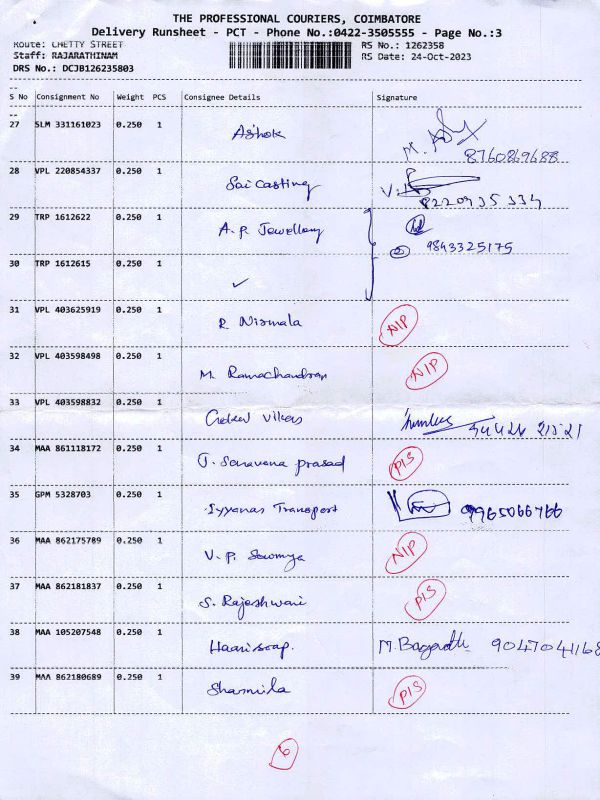 THE PROFESSIONAL COURIERS, COIMBATORE
Delivery Runsheet - PCT - Phone No.:0422-3505555 - Page No.:3
Route: CHETTY STREET RS No.: 1262358
Staff: RAJARATHINAM RS Date: 24-Oct-2023
DRS No.: DCJB126235803
S No Consignment No Weight PCS Consignee Details Signature
27 SLM 331161023 0.250 1 Ashok M. 8760869688
28 VPL 220854337 0.250 1 Sai Casting 8220935334
29 TRP 1612622 0.250 1 A.P. Jewellary 9843325175
30 TRP 1612615 0.250 1 ✓
31 VPL 403625919 0.250 1 R. Nirmala NIP
32 VPL 403598498 0.250 1 M. Ramachandran NIP
33 VPL 403598832 0.250 1 Vikas
34 MAA 861118172 0.250 1 Saravana prasad PIS
35 GPM 5328703 0.250 1 Iyyanar Transport 9965066766
36 MAA 862175789 0.250 1 V.P. Sowmya NIP
37 MAA 862181837 0.250 1 S. Rajeshwari PIS
38 MAA 105207548 0.250 1 Haarisoap. M. 9047041168
39 MAA 862180689 0.250 1 Sharmila PIS
6